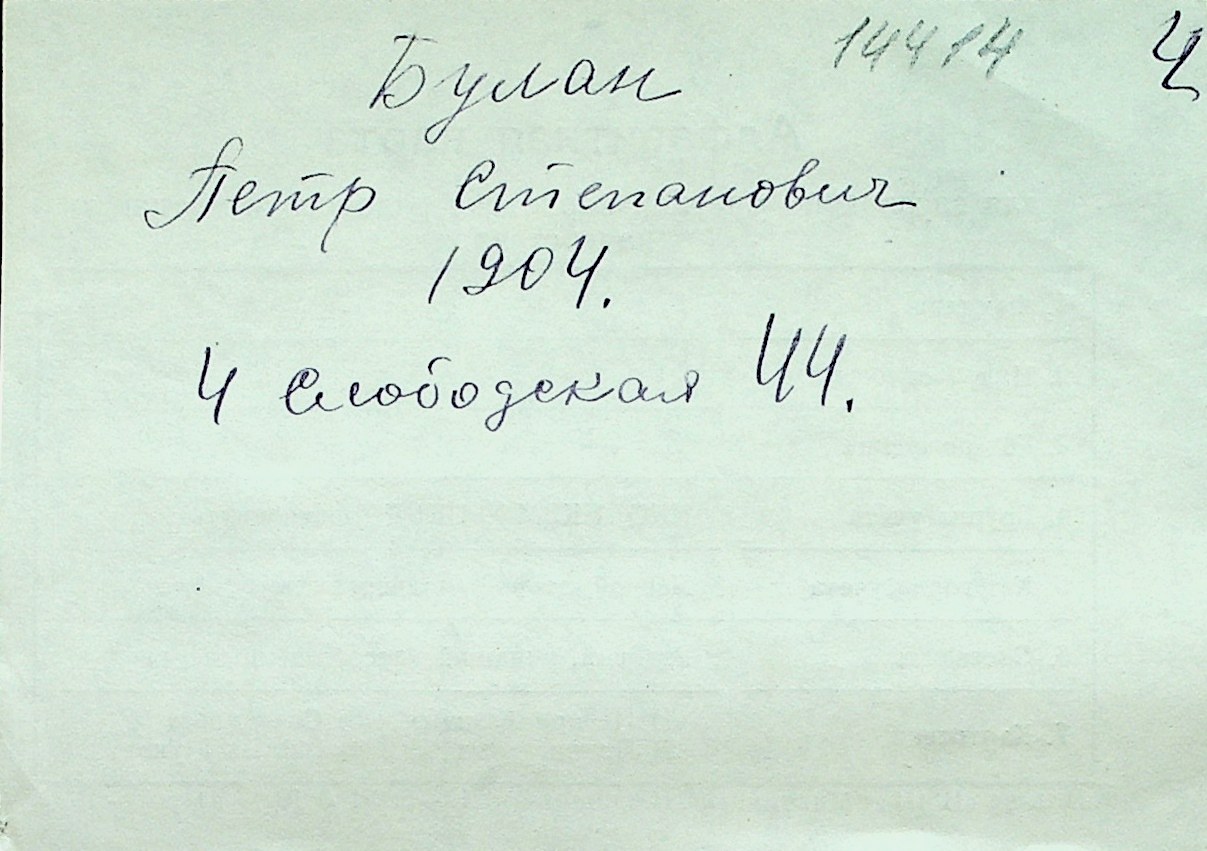 14414 4
Булан
Петр Степанович
1904.
4 Слободская 44.